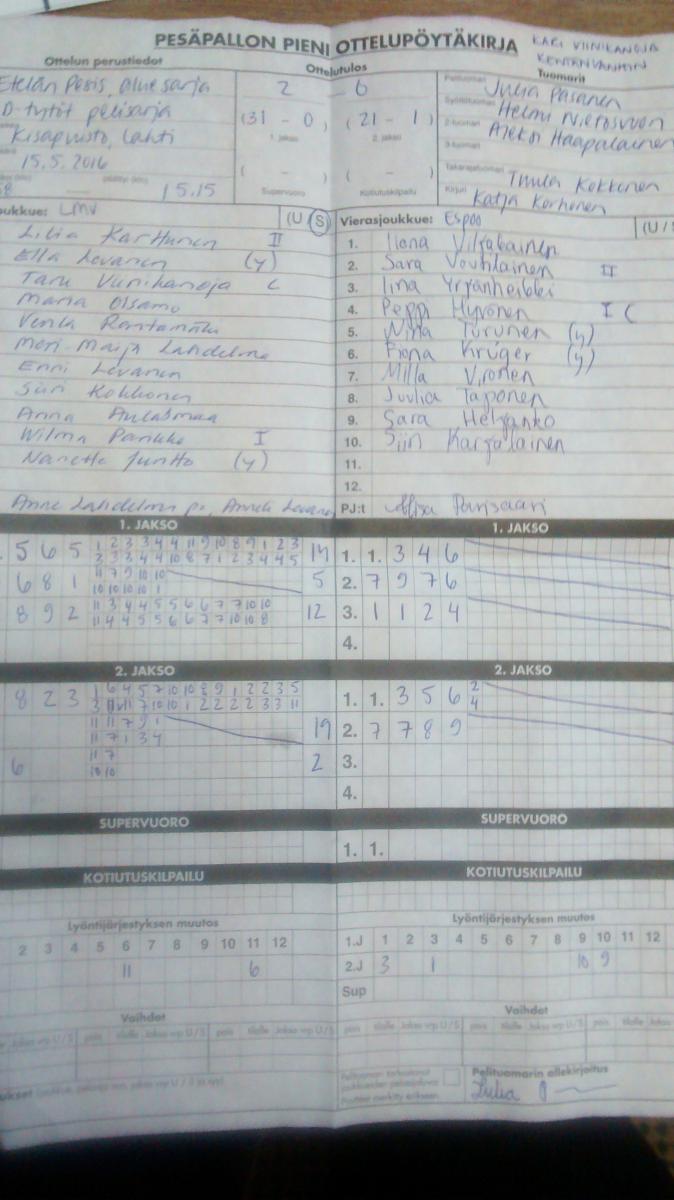 PESÄPALLON PIENI OTTELUPÖYTÄKIRJA
KARI VIINIKANOJA
Ottelun perustiedot
Ottelutulos
Tuomarit
Etelän Pesis, aluesarja
2 - 0
Julia Pasanen
D-tytöt pelisarja
(31 - 0)
(21 - 1)
Helmi
1. jakso
2. jakso
Aleksi Haapalainen
Kisapuisto, Lahti
15.5.2016
( - )
( - )
Tuula Kokkonen
15.15
Supervuoro
Kotiutuskilpailu
Kirjuri
Katja Korhonen
oukkue: LMV
(U (S)
Vierasjoukkue: Espoo
(U / S
Lilia Karttunen II
Ella Levanen (y)
Taru Viinikanoja C
Maria Olsamo
Venla Rantamäki
Meri-Maija Lahdelma
Enni Levanen
Siiri Kokkonen
Anna
Wilma Pankko I
Nanette Juntto (y)
Anne Lahdelma pj, Anneli Levanen
1. Ilona
2. Sara Voutilainen II
3. Iina Yrjänheikki
4. Peppi Hyvönen I C
5. Nina Turunen (y)
6. Fiona Krüger (y)
7. Milla Vironen
8. Juulia Taponen
9. Sara Heljanko
10. Siiri Karjalainen
11.
12.
PJ:t Parisaari
1. JAKSO
1. JAKSO
5 6 5
1 2 3 3 4 4 11 9 10 8 9 1 2 3
3 3 4 4 10 8 7 1 2 3 4 4 5
14
1. 1. 3 4 6
6 8 1
11 7 9 10 10
10 10 10 10 1
5
2. 7 9 7 6
8 9 2
11 3 4 4 5 5 6 6 7 7 10 10
11 4 4 5 5 6 6 7 7 10 10 8
12
3. 1 1 2 4
4.
2. JAKSO
2. JAKSO
8 2 3
1 6 4 5 7 10 10 8 9 1 2 2 3 5
7 10 10 1 2 2 2 2 3 3 11
1. 1. 3 5 6 2
4
11 11 7 9 1
11 7 1 3 4
19
2. 7 7 8 9
6
11 7
10 10
2
3.
4.
SUPERVUORO
SUPERVUORO
1. 1.
KOTIUTUSKILPAILU
KOTIUTUSKILPAILU
Lyöntijärjestyksen muutos
Lyöntijärjestyksen muutos
2 3 4 5 6 7 8 9 10 11 12
1.J 1 2 3 4 5 6 7 8 9 10 11 12
11 6
2.J 3 1 10 9
Sup
Vaihdot
Vaihdot
Pelituomarin allekirjoitus
Julia